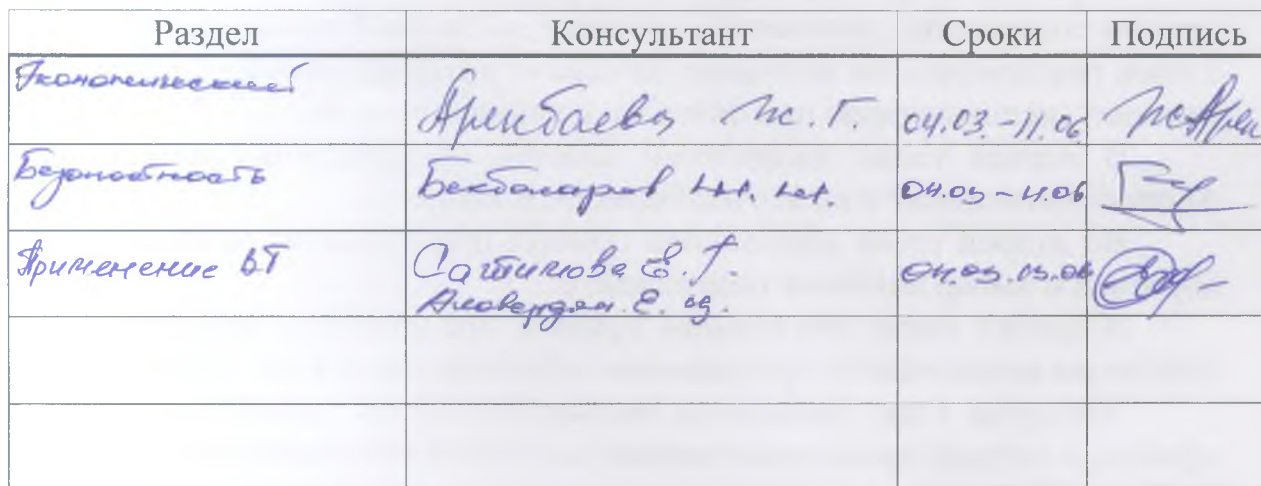 Раздел Консультант Сроки Подпись
Экономический Аренбаева Ж. Г. 04.03.-11.06
Безопасность Бекбасаров 04.03-11.06
Применение ВТ Сагтимова Е. 04.03
Е.